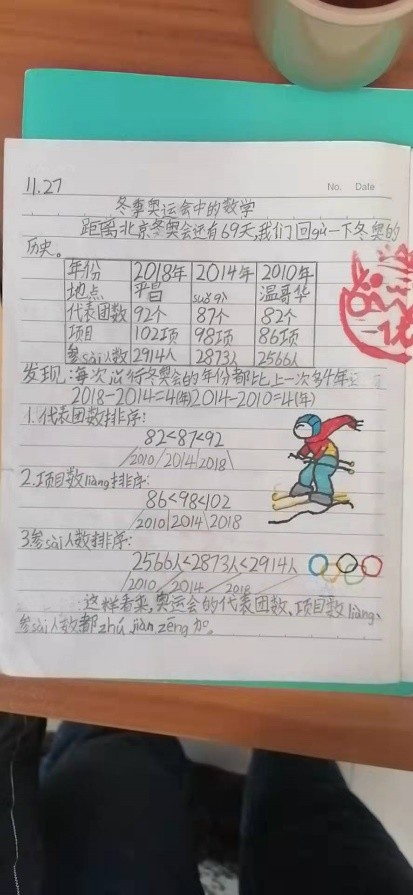 11.27
No. Date
冬季奥运会中的数学
距离北京冬奥会还有69天,我们回gù一下冬奥的
历史。
年份 2018年 2014年 2010年
地点 平昌 suǒ qì 温哥华
代表团数 92个 87个 82个
项目 102项 98项 86项
参sài人数 2914人 2873人 2566人
发现:每次举行冬奥会的年份都比上一次多4年
2018-2014=4(年) 2014-2010=4(年)
1.代表团数排序:
82<87<92
2010 2014 2018
2.项目数liàng排序:
86<98<102
2010 2014 2018
3.参sài人数排序:
2566人<2873人<2914人
2010 2014 2018
这样看来,奥运会的代表团数、项目数liàng、
参sài人数都zhú jiàn zēng加。